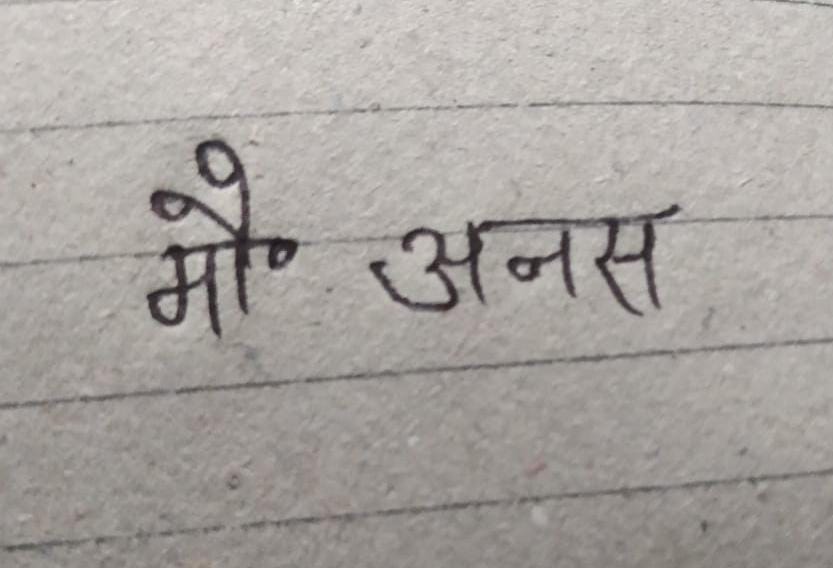 मौ० अनस